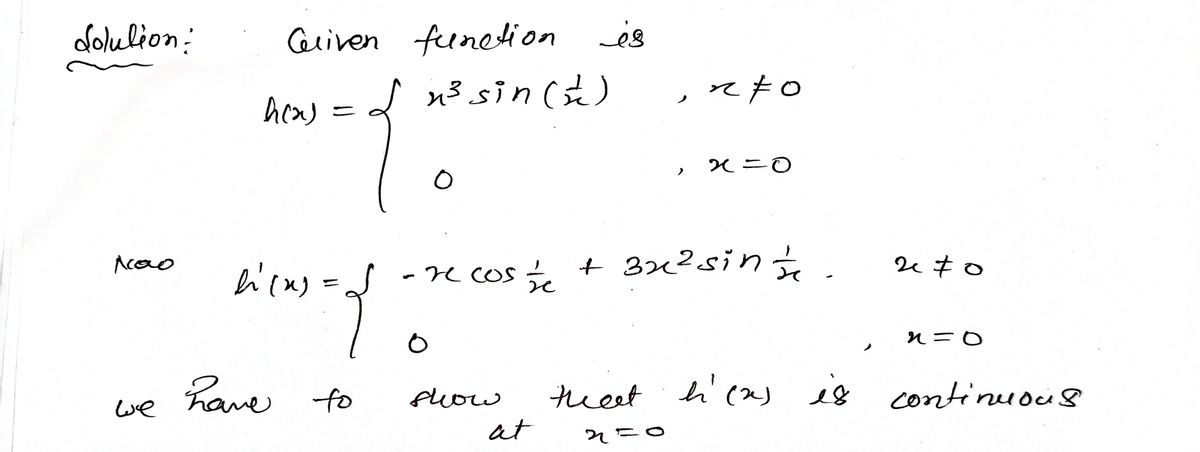 Solution: Given function is
h(x) = { x³ sin(1/x) , x ≠ 0
0 , x = 0
Now h'(x) = { -x cos 1/x + 3x² sin 1/x . x ≠ 0
0 , x = 0
we have to show that h'(x) is continuous
at x = 0